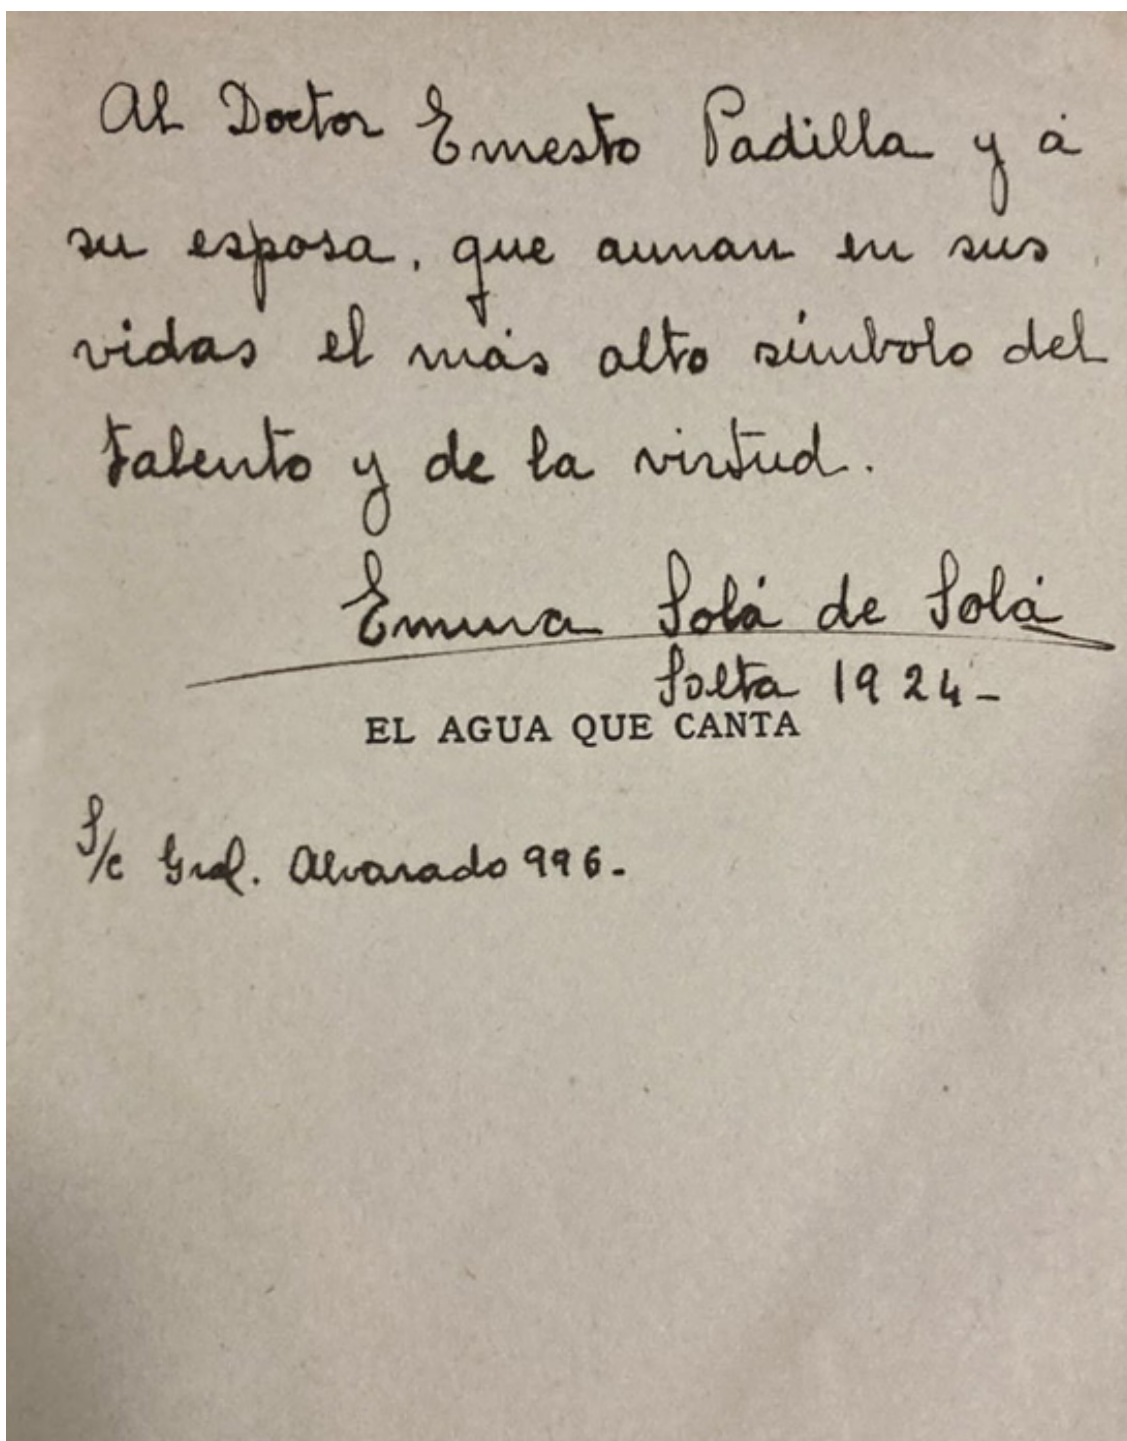 Al Doctor Ernesto Padilla y á
su esposa, que aunan en sus
vidas el más alto símbolo del
talento y de la virtud.
Emma Solá de Solá
Salta 1924-
EL AGUA QUE CANTA
S/c Gral. Alvarado 996.-